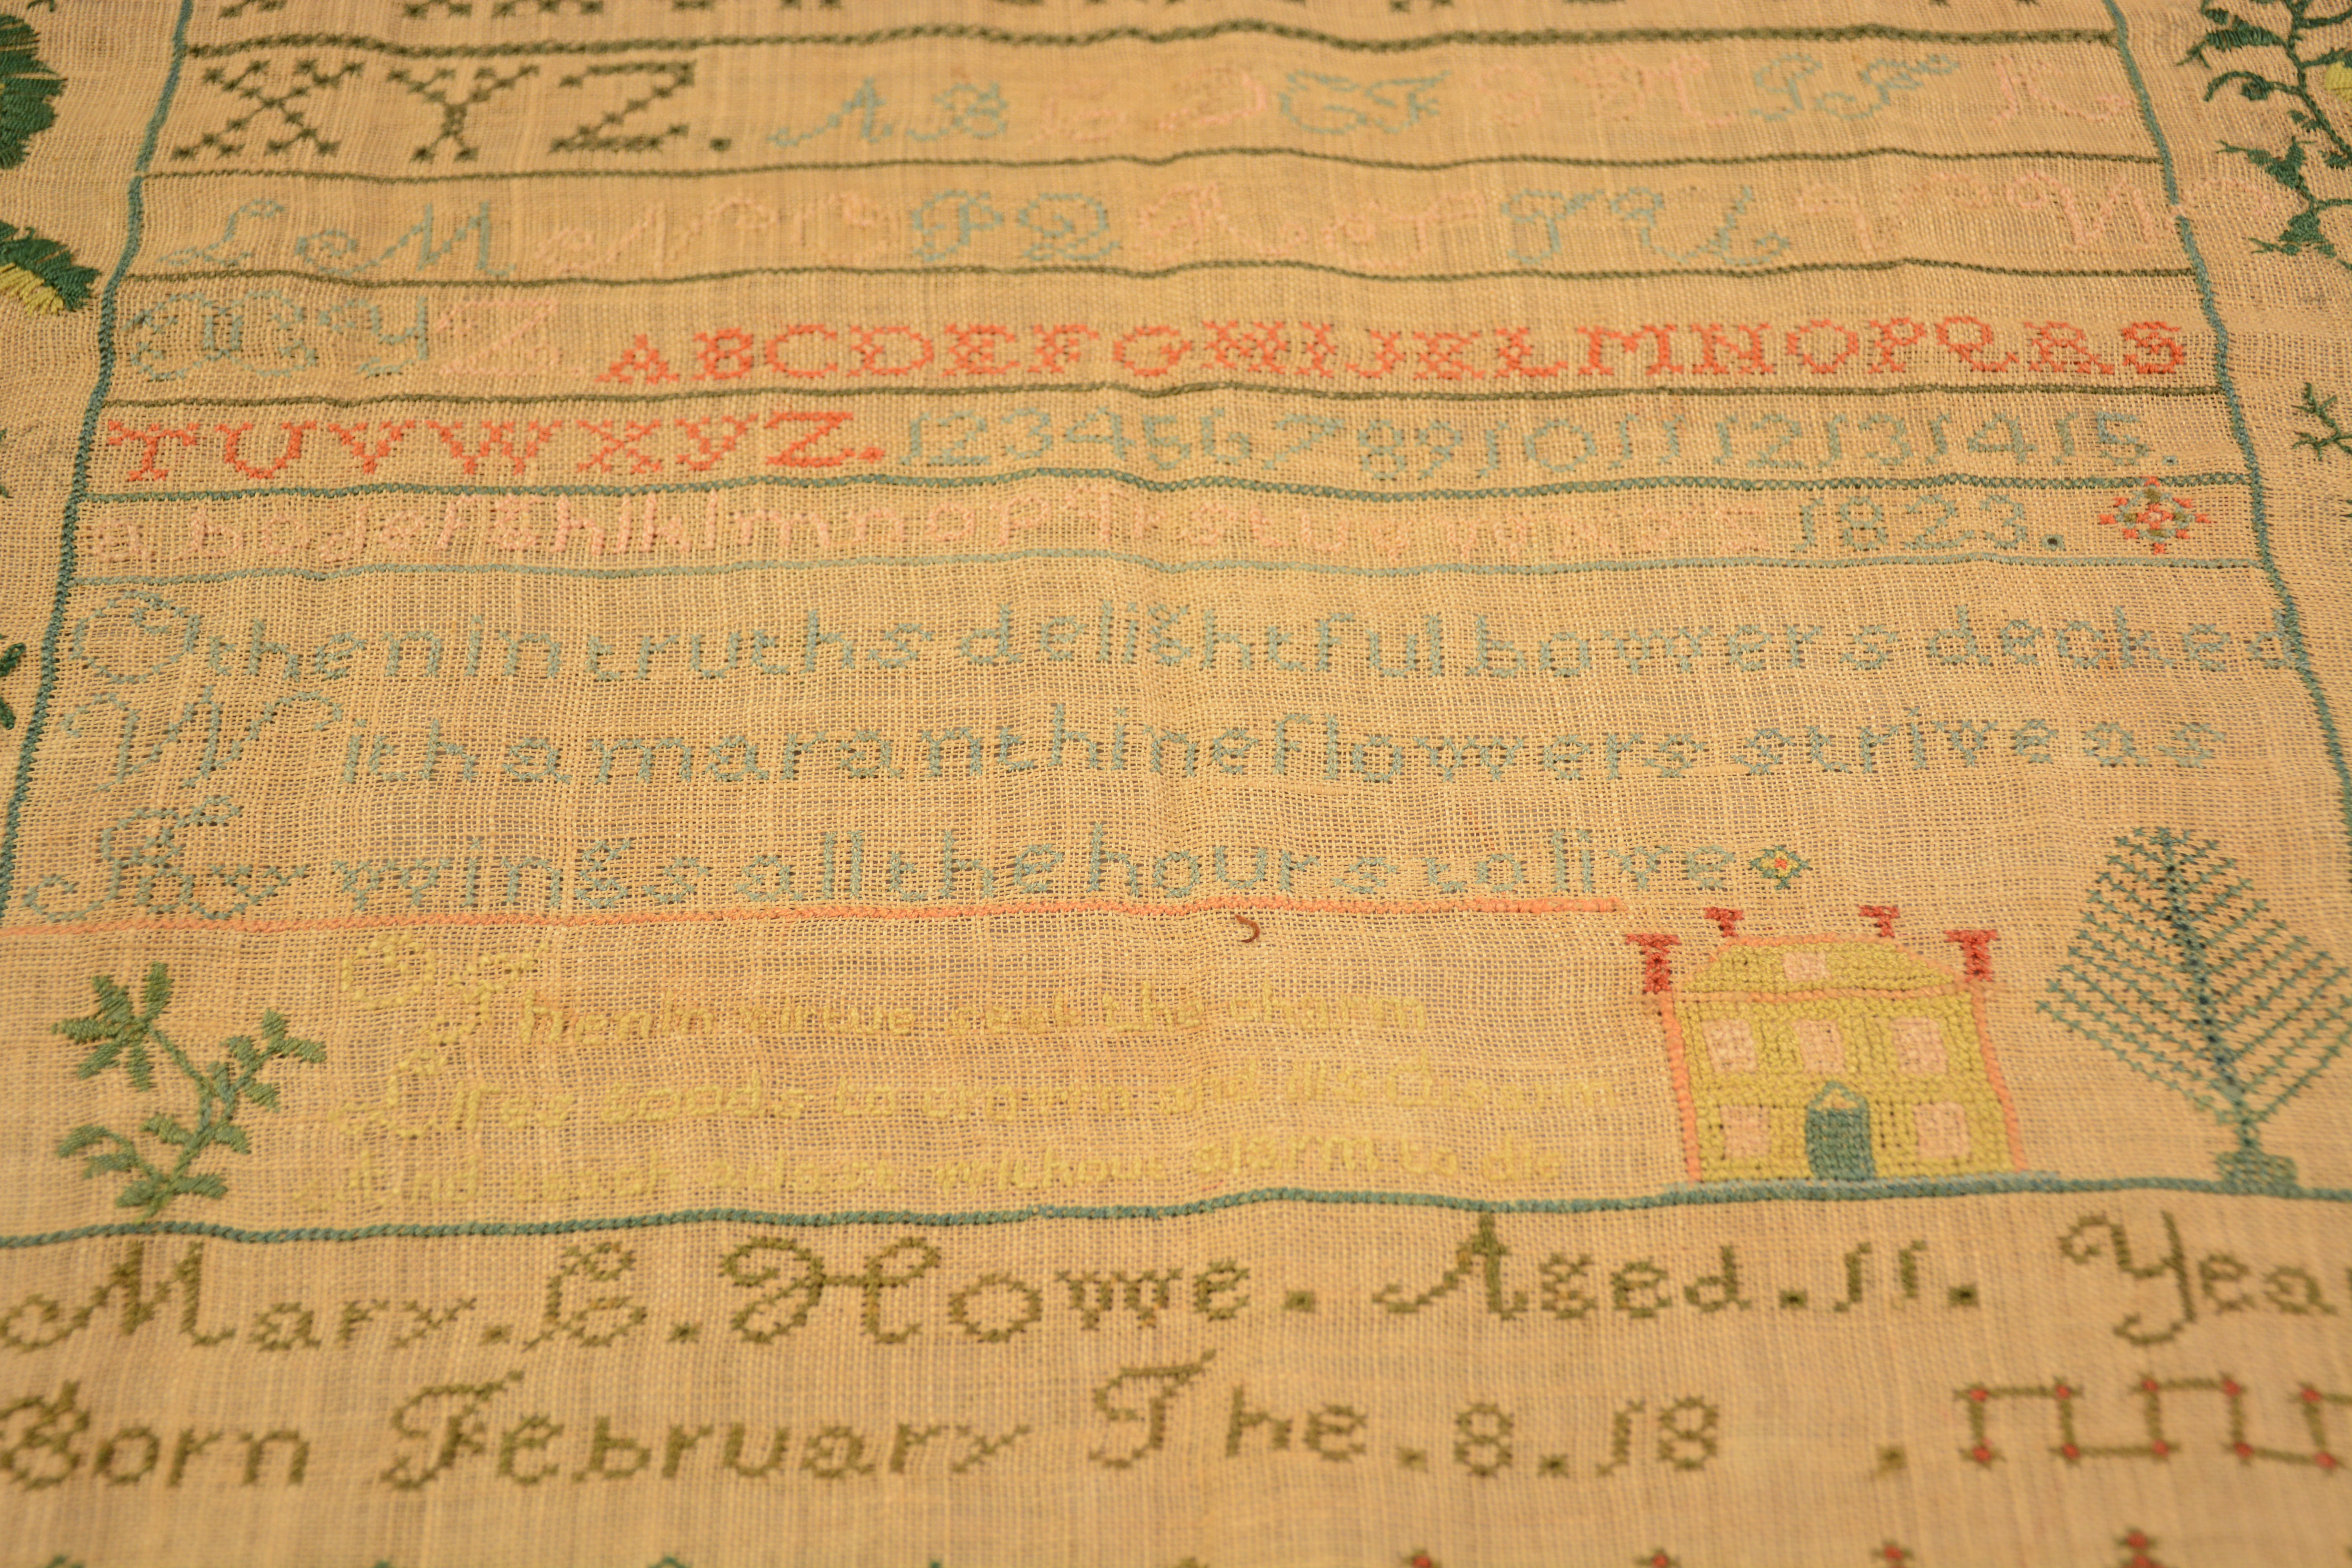 X Y Z . A B C D E F G H I J K
L M N O P Q R S T U V W
X Y Z A B C D E F G H I J K L M N O P Q R S
T U V W X Y Z . 1 2 3 4 5 6 7 8 9 10 11 12 13 14 15 .
a b c d e f g h i k l m n o p q r s t u v w x y z 1823 .
O then in truths delightful bowers decked
With amaranthine flowers strive as
Thy wings all the hours to live
O Then in virtue seek the charm
Lifes to and
And without alarm to die
Mary . E . Howe . Aged . 11 . Yea
Born February The . 8 . 18 .